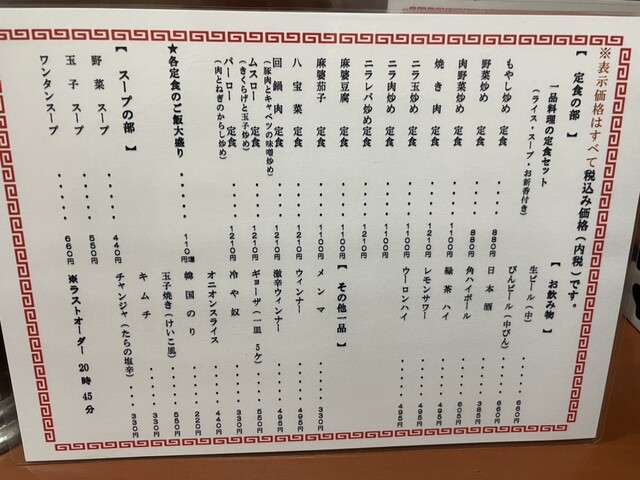 ※表示価格はすべて税込み価格(内税)です。
【 定食の部 】
一品料理の定食セット
(ライス・スープ・お新香付き)
もやし炒め 定食・・・・880円
野菜炒め 定食・・・・880円
肉野菜炒め 定食・・・・1100円
焼き肉 定食・・・・1210円
ニラ玉炒め 定食・・・・1100円
ニラ肉炒め 定食・・・・1100円
ニラレバ炒め定食・・・・1210円
麻婆豆腐 定食・・・・1100円
麻婆茄子 定食・・・・1100円
八宝菜 定食・・・・1210円
回鍋肉 定食・・・・1210円
(豚肉とキャベツの味噌炒め)
ムースロー 定食・・・・1210円
(きくらげと玉子炒め)
パーロー 定食・・・・1210円
(肉とねぎのからし炒め)
★各定食のご飯大盛り・・・・・110円増
【 スープの部 】
野菜スープ・・・・・440円
玉子スープ・・・・・550円
ワンタンスープ・・・・・660円
【 お飲み物 】
生ビール(中)・・・・660円
びんビール(中びん)・・・660円
日本酒・・・・385円
角ハイボール・・・・605円
緑茶ハイ・・・・495円
レモンサワー・・・・495円
ウーロンハイ・・・・495円
【 その他一品 】
メンマ・・・・330円
ウィンナー・・・・495円
激辛ウィンナー・・・・495円
ギョーザ(一皿 5ケ)・・・・550円
冷や奴・・・・330円
オニオンスライス・・・・440円
韓国のり・・・・220円
玉子焼き(けいこ風)・・・・550円
キムチ・・・・330円
チャンジャ(たらの塩辛)・・・330円
※ラストオーダー 20時45分